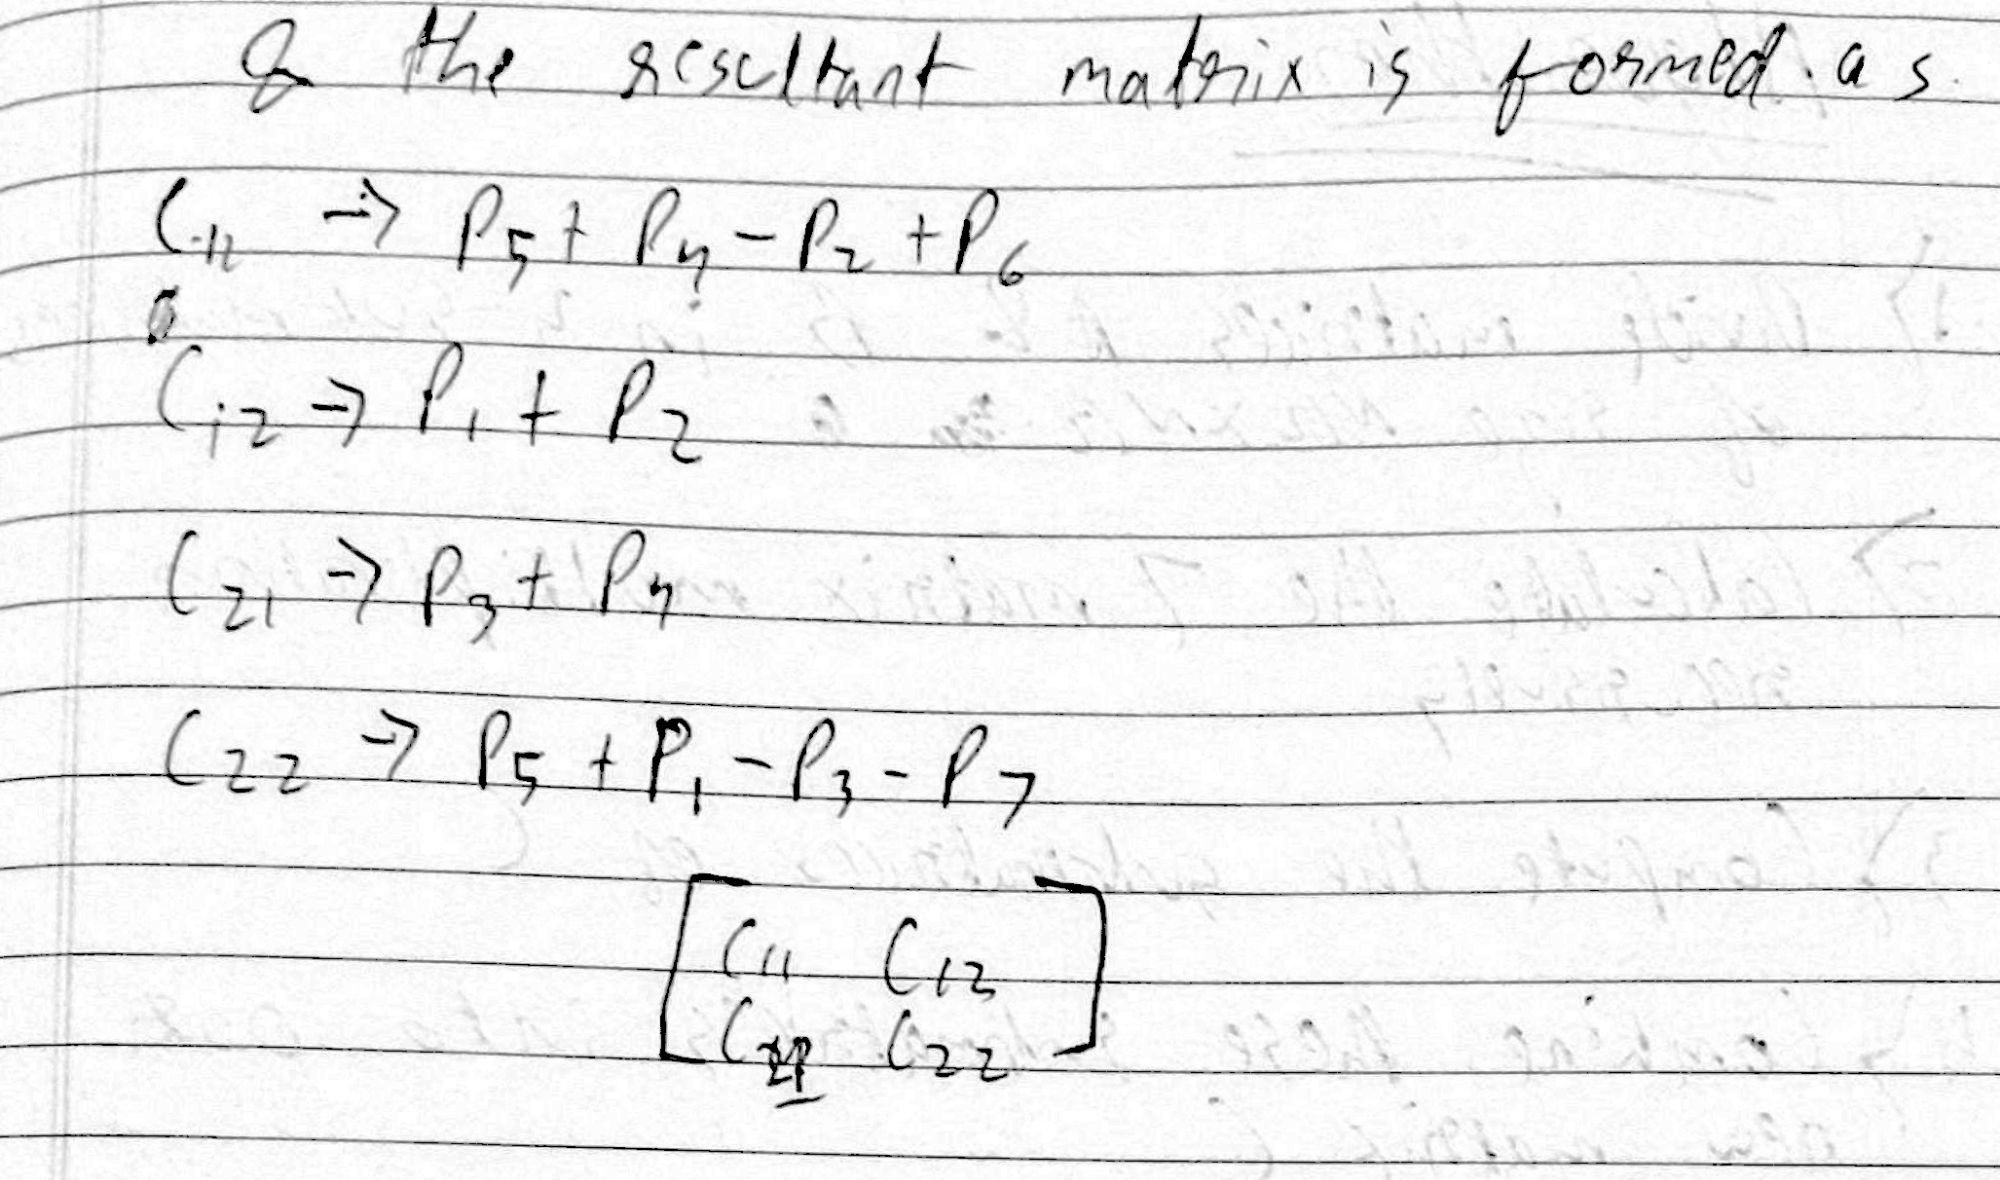 & the resultant matrix is formed as
C11 → P5 + P4 - P2 + P6
C12 → P1 + P2
C21 → P3 + P4
C22 → P5 + P1 - P3 - P7
C11 C12
C21 C22